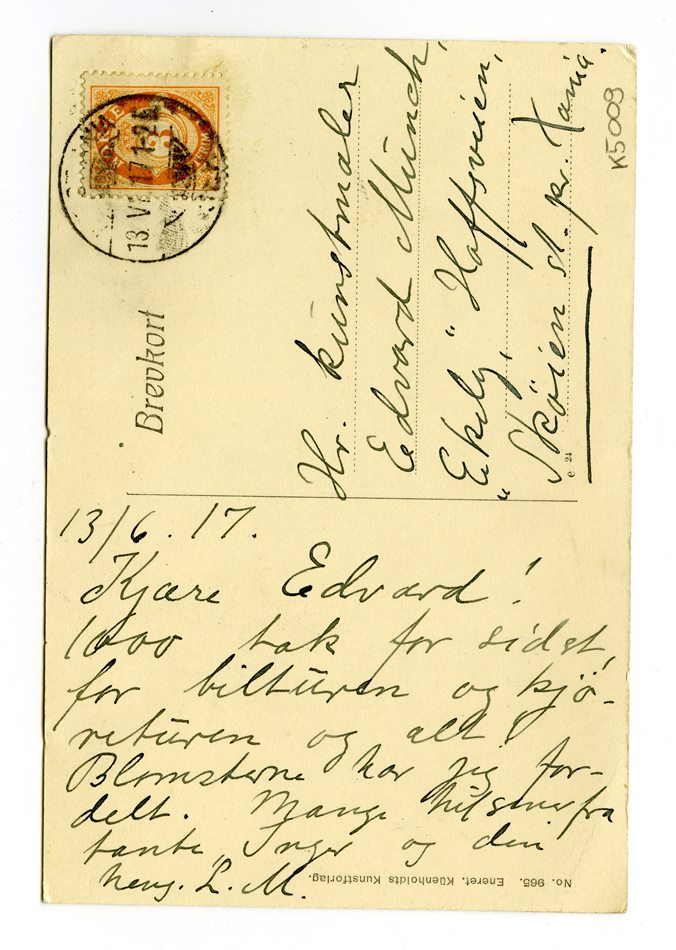 K5009
NORGE
3
POST
13 VI 17 1-2
Brevkort
Hr. kunstmaler
Edvard Münch,
"Ekely", Hoffsveien,
Skøien st. pr. Kania.
e 24
13/6. 17.
Kjære Edvard!
1000 tak for sidst,
for bilturen og kjø-
returen og alt!
Blomsterne har jeg for-
delt. Mange hilsner fra
tante, Inger og din
heng. L. M.
No. 965. Eneret. Küenholdts Kunstforlag.